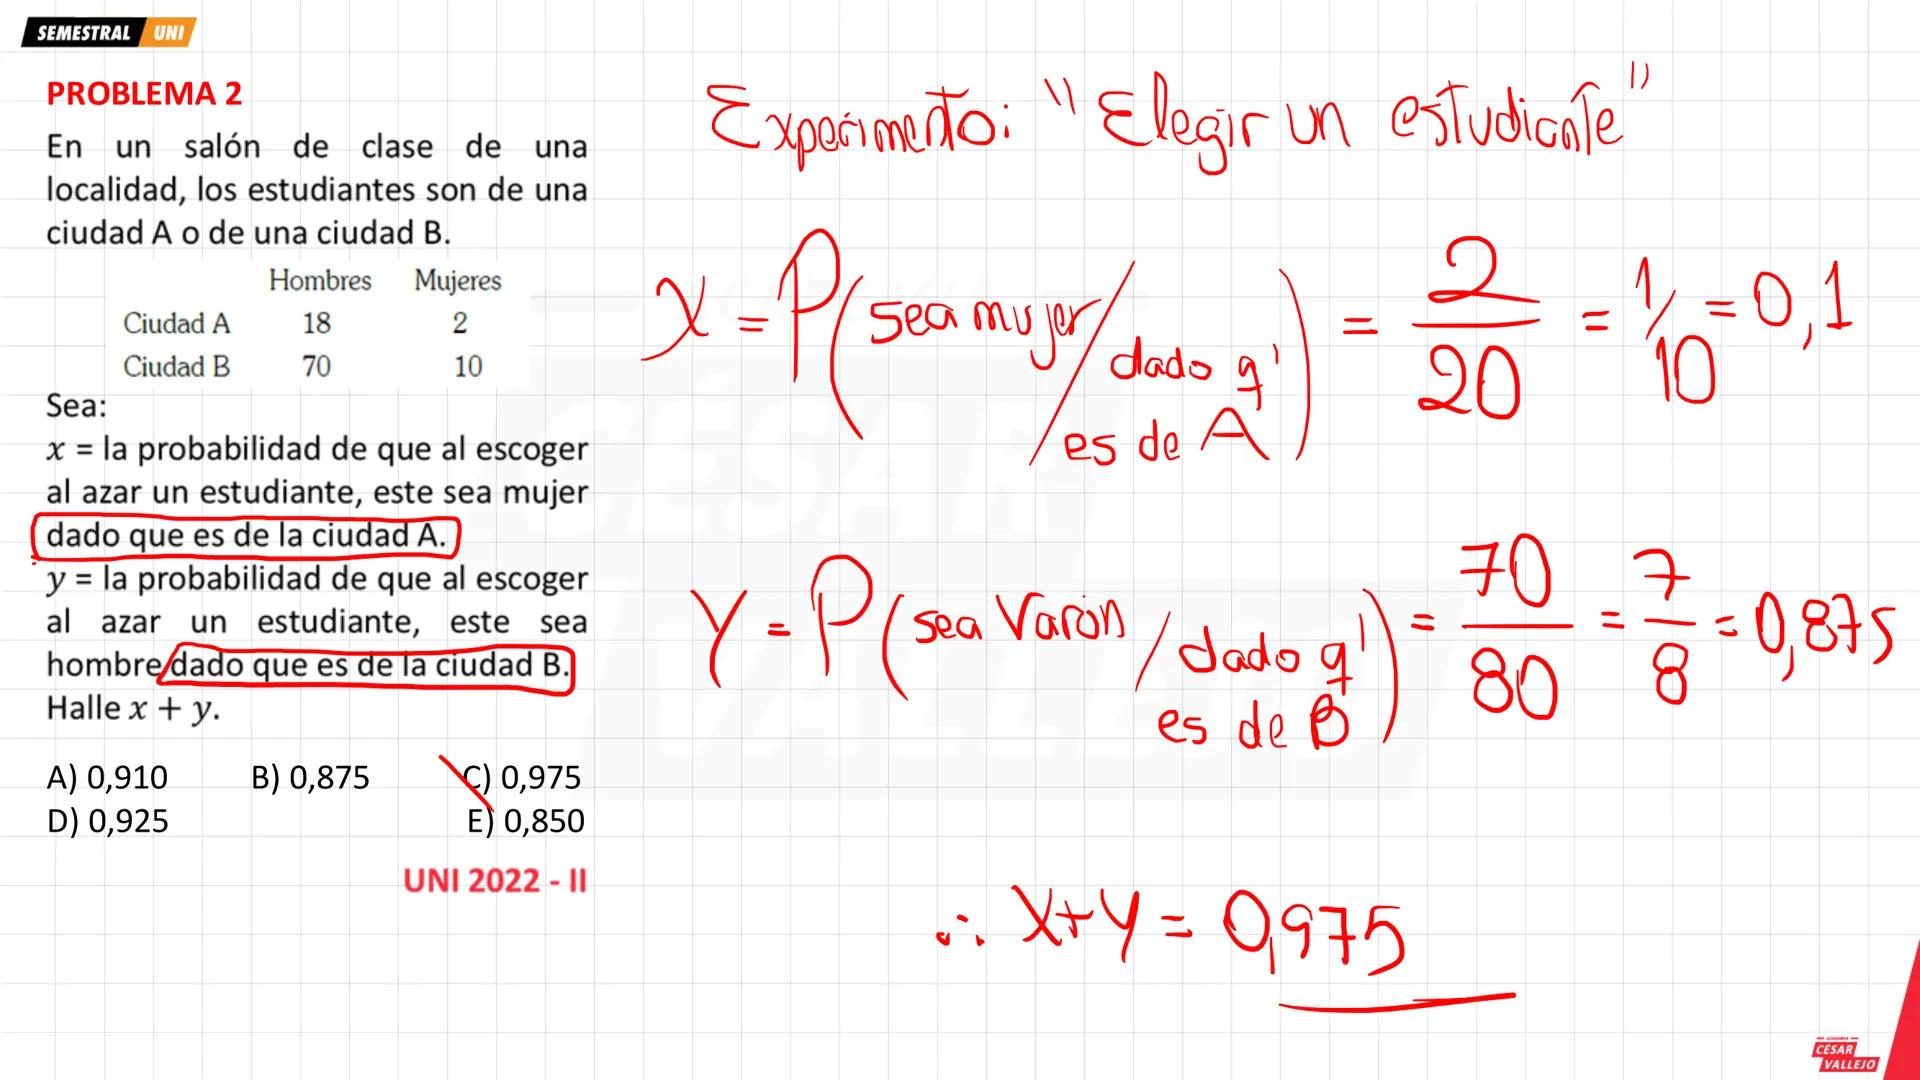 SEMESTRAL UNI
PROBLEMA 2
En un salón de clase de una
localidad, los estudiantes son de una
ciudad A o de una ciudad B.
Hombres Mujeres
Ciudad A 18 2
Ciudad B 70 10
Sea:
x = la probabilidad de que al escoger
al azar un estudiante, este sea mujer
dado que es de la ciudad A.
y = la probabilidad de que al escoger
al azar un estudiante, este sea
hombre dado que es de la ciudad B.
Halle x + y.
A) 0,910 B) 0,875 C) 0,975
D) 0,925 E) 0,850
UNI 2022 - II
Experimento: "Elegir un estudiante"
X = P(sea mujer / dado q' es de A) = 2/20 = 1/10 = 0,1
Y = P(sea Varón / dado q' es de B) = 70/80 = 7/8 = 0,875
∴ X+Y = 0,975
ACADEMIA
CÉSAR
VALLEJO